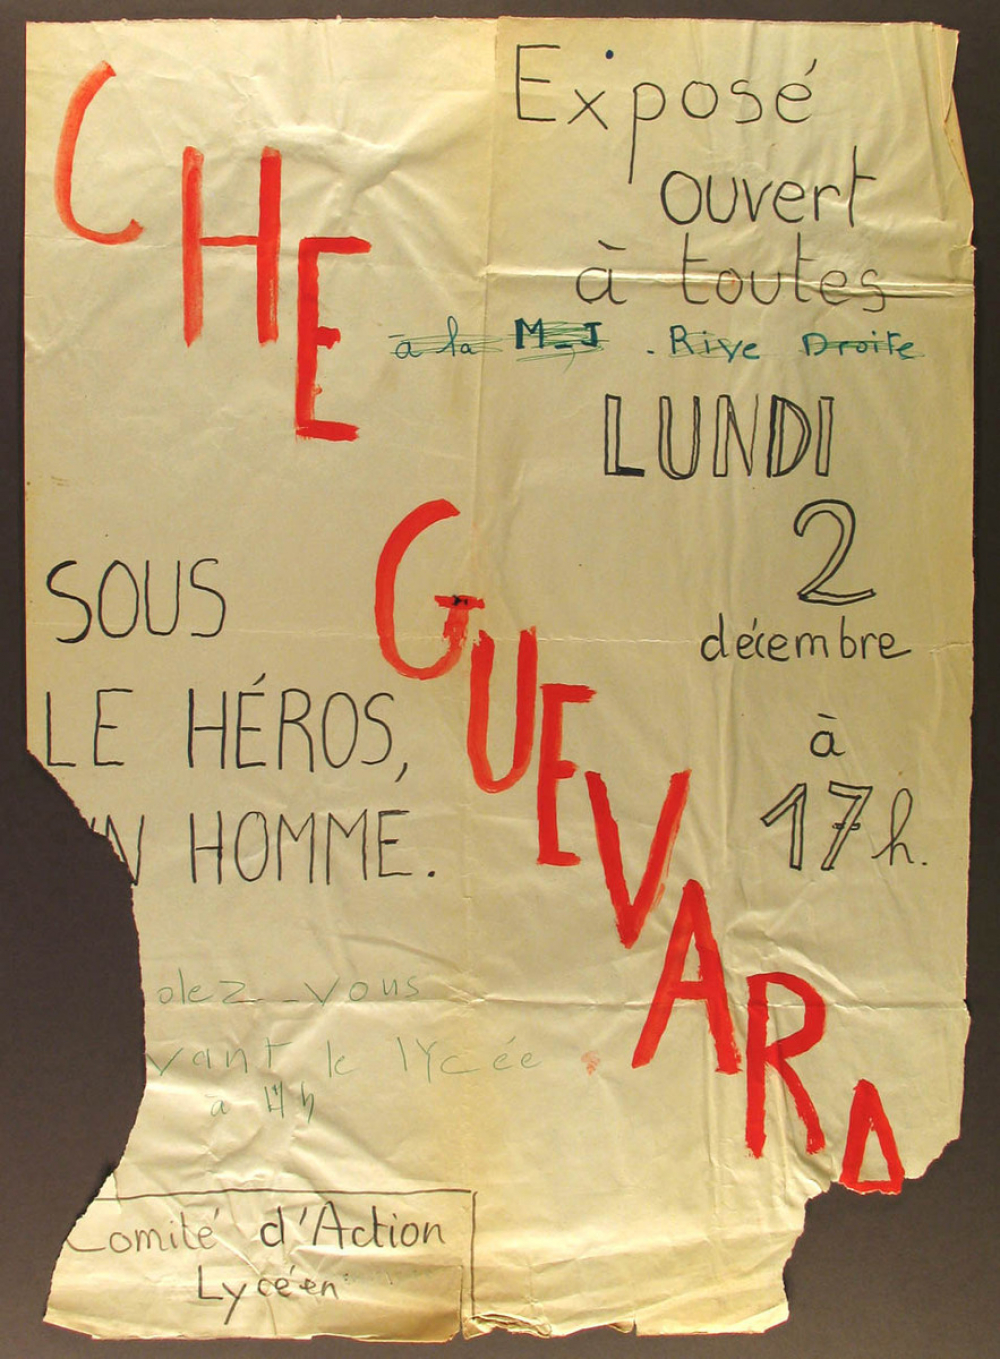 CHE
GUEVARA
Exposé
ouvert
à toutes
à la M_J . Rive Droite
LUNDI
2
décembre
à
17h.
SOUS
LE HÉROS,
UN HOMME.
olez_vous
vant le lycée
à
Comité d'Action
Lycéen